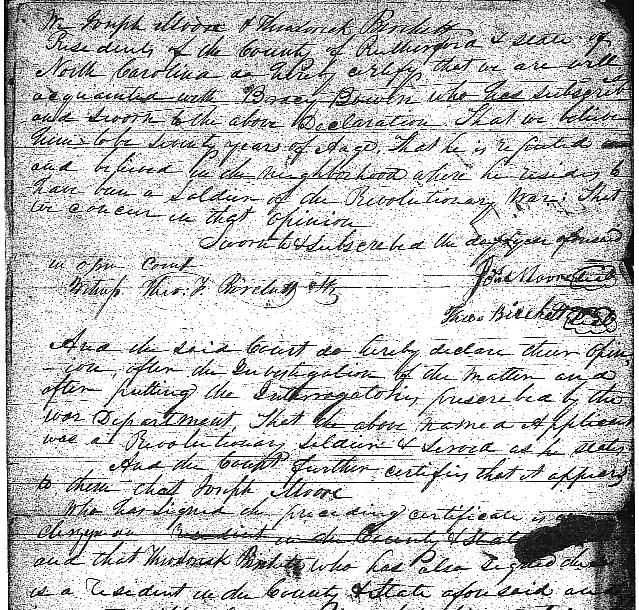 We Joseph Moore & Theoderick Birchett
Residents of the County of Rutherford & State of
North Carolina do hereby certify that we are well
acquainted with Bracy Bowen who has subscribed
and sworn to the above Declaration. That we believe
him to be seventy years of Aage, That he is reputed
and believed in the neighborhood where he resides to
have been a Soldier of the Revolutionary War: That
we concur in that opinion
Sworn to & subscribed the day & year aforesaid
in open Court
Theo. F. Birchett
Jos. Moore Seal
Theo Birchett Seal
And the said Court do hereby declare their Opin
-ion, after the Investigation of the Matter and
after putting the Interrogatories prescribed by the
War Department, That the above named Applicant
was a Revolutionary Soldier & served as he states
And the Court further certifies that it appears
to them that Joseph Moore
who has signed the preceding certificate is
Clergyman resident in the County & State
and that Theoderick Birchett who has also signed
is a resident in the County & State aforesaid and